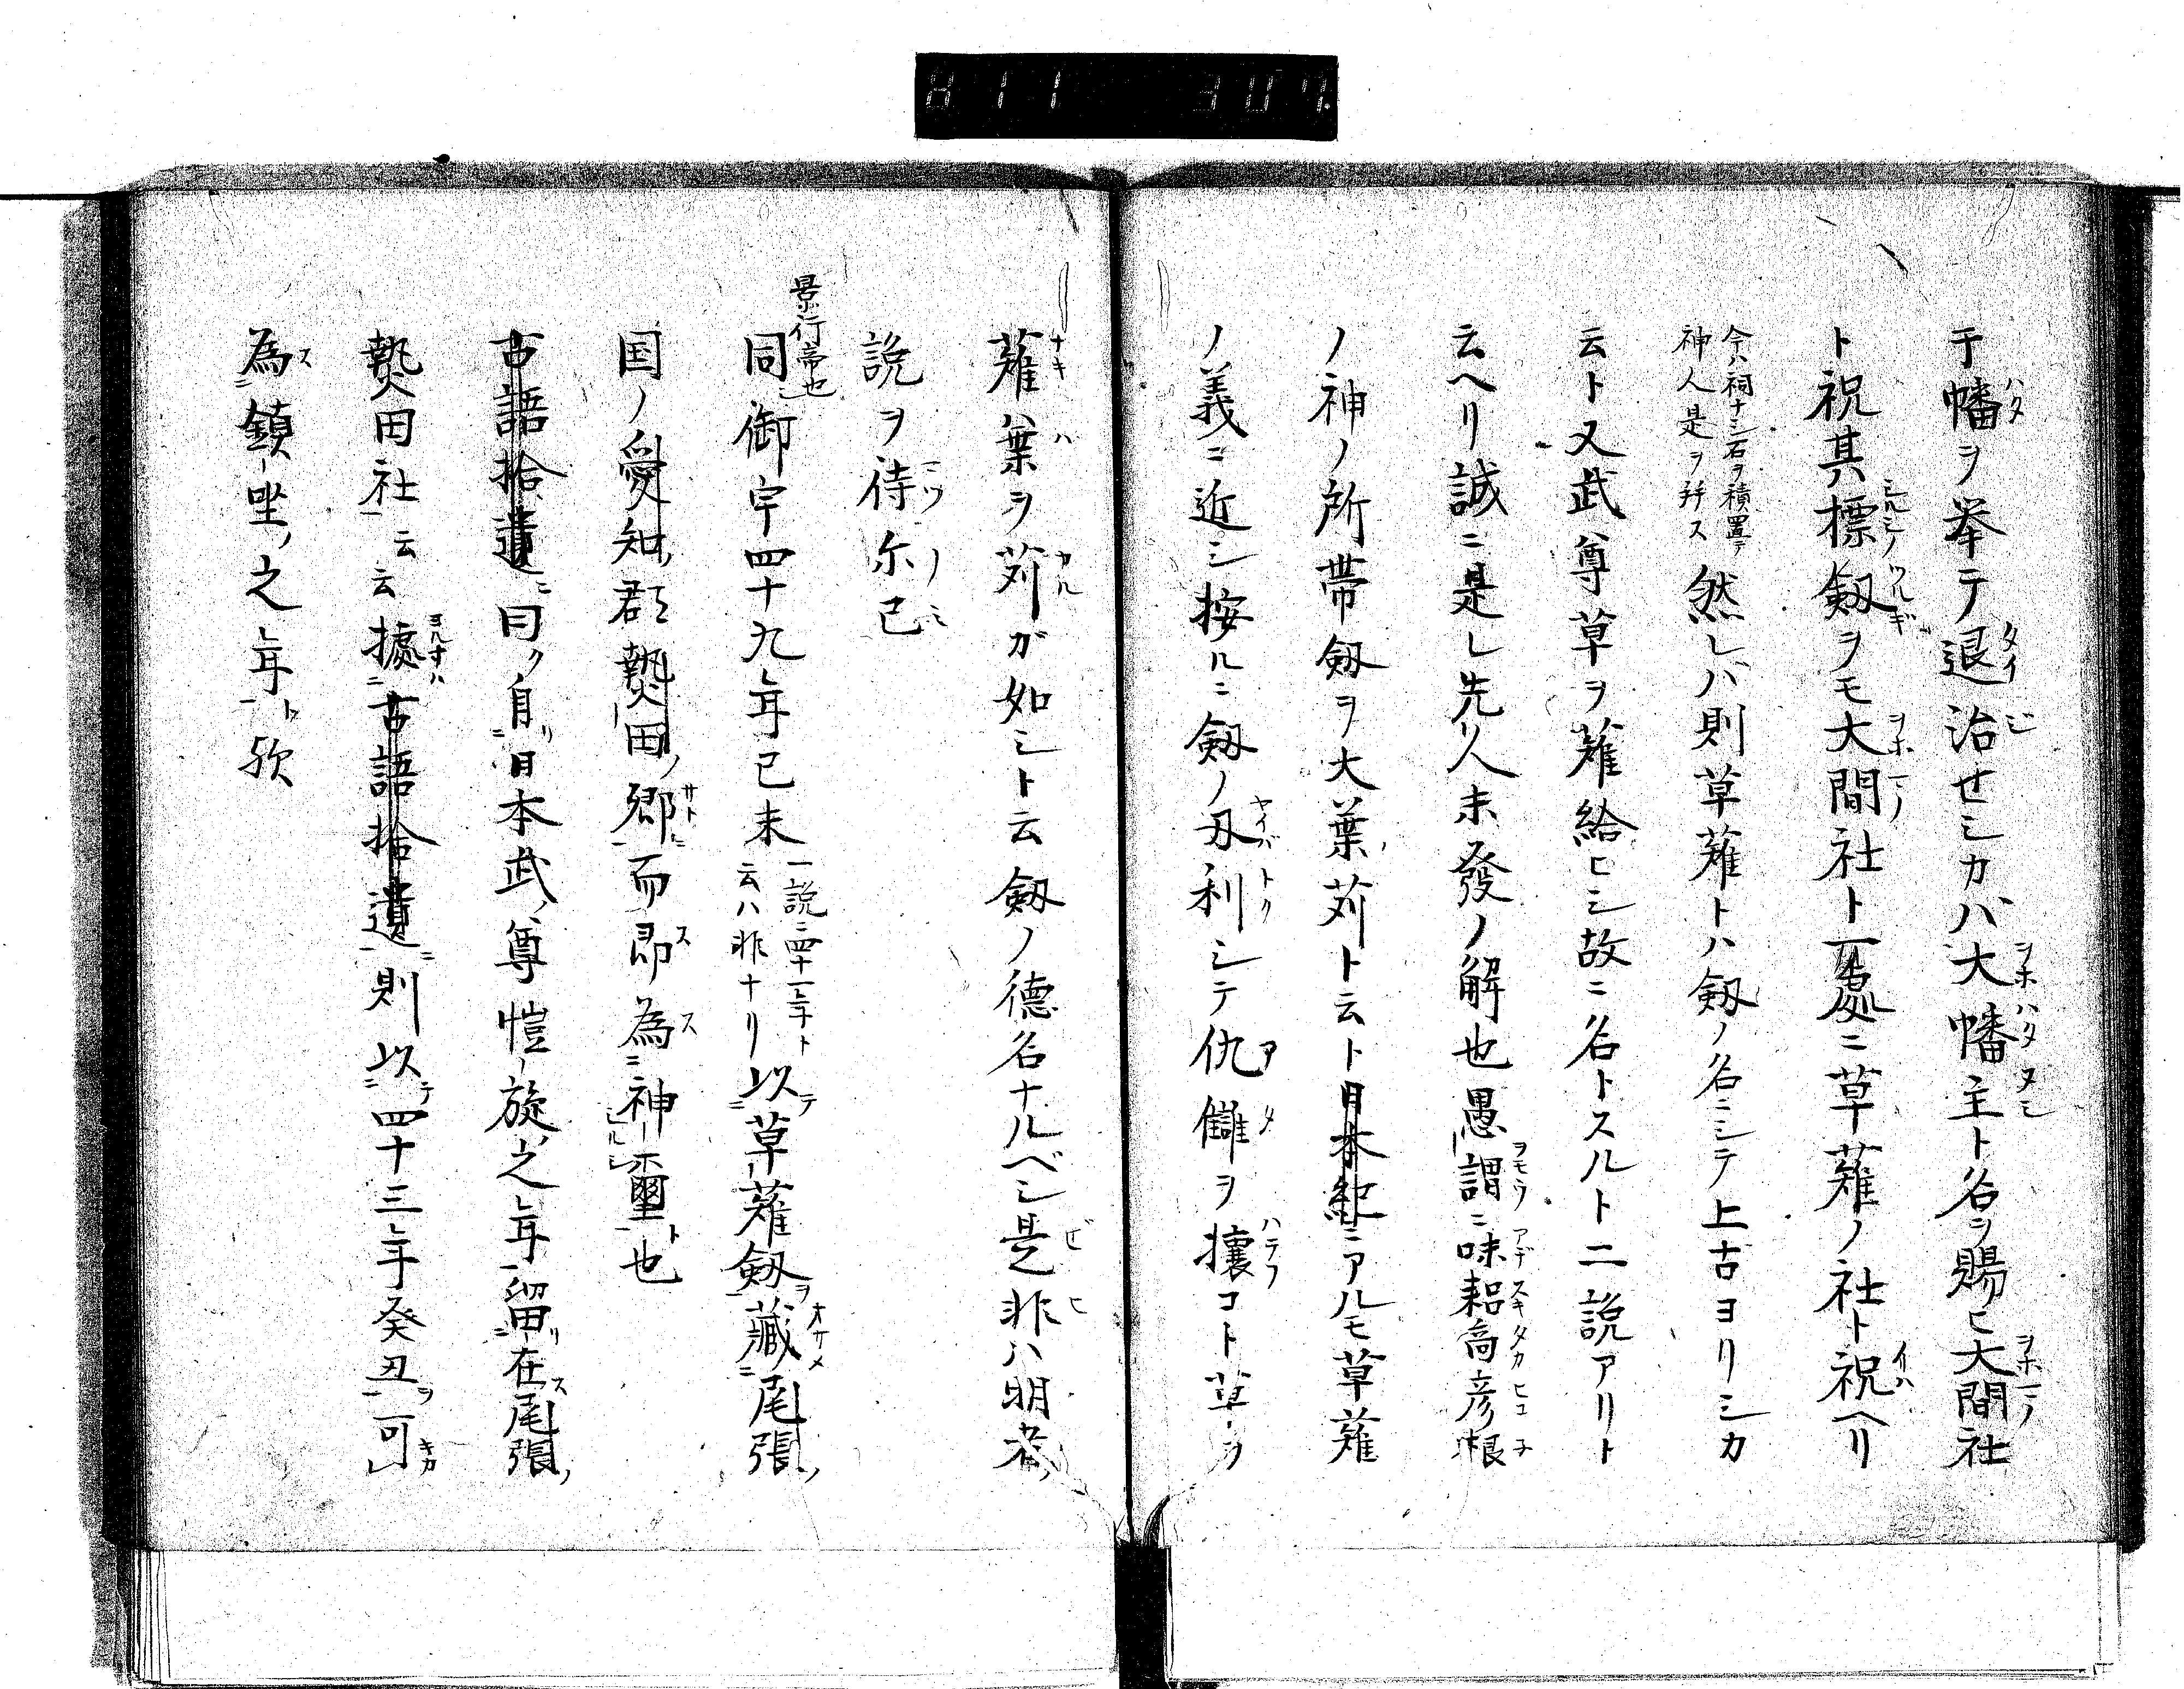 811 307
于幡ヲ挙テ退治セシカバ大幡主ト名ヲ賜ヒ大間社
ト祝其標劔ヲモ大間社ト一處ニ草薙ノ社ト祝ヘリ
今ハ祠ナシ石ヲ積置テ
神人是ヲ拜ス
然レバ則草薙トハ劔ノ名ニシテ上古ヨリシカ
云ト又武尊草ヲ薙給ヒシ故ニ名トスルト二説アリト
云ヘリ誠ニ是レ先人未發ノ解也愚謂ニ味耜高彦根
ノ神ノ所帯劔ヲ大葉苅ト云ト日本紀ニアルモ草薙
ノ義ニ近シ按ルニ劔ノ刄利シテ仇讎ヲ攘コト草ヲ
薙ハ葉ヲ苅ガ如シト云劔ノ德名ナルベシ是非ハ明者ノ
説ヲ待尓已
景行帝也
同御宇四十九年己未
一説ニ四十一年ト
云ハ非ナリ
以草薙劔藏尾張ノ
国ノ愛知郡熱田ノ郷而即為神璽也
古語拾遺ニ曰ク自日本武ノ尊愷旋之年留在尾張ノ
熱田社云云據古語拾遺則以四十三年癸丑可
為鎮坐ノ之年歟